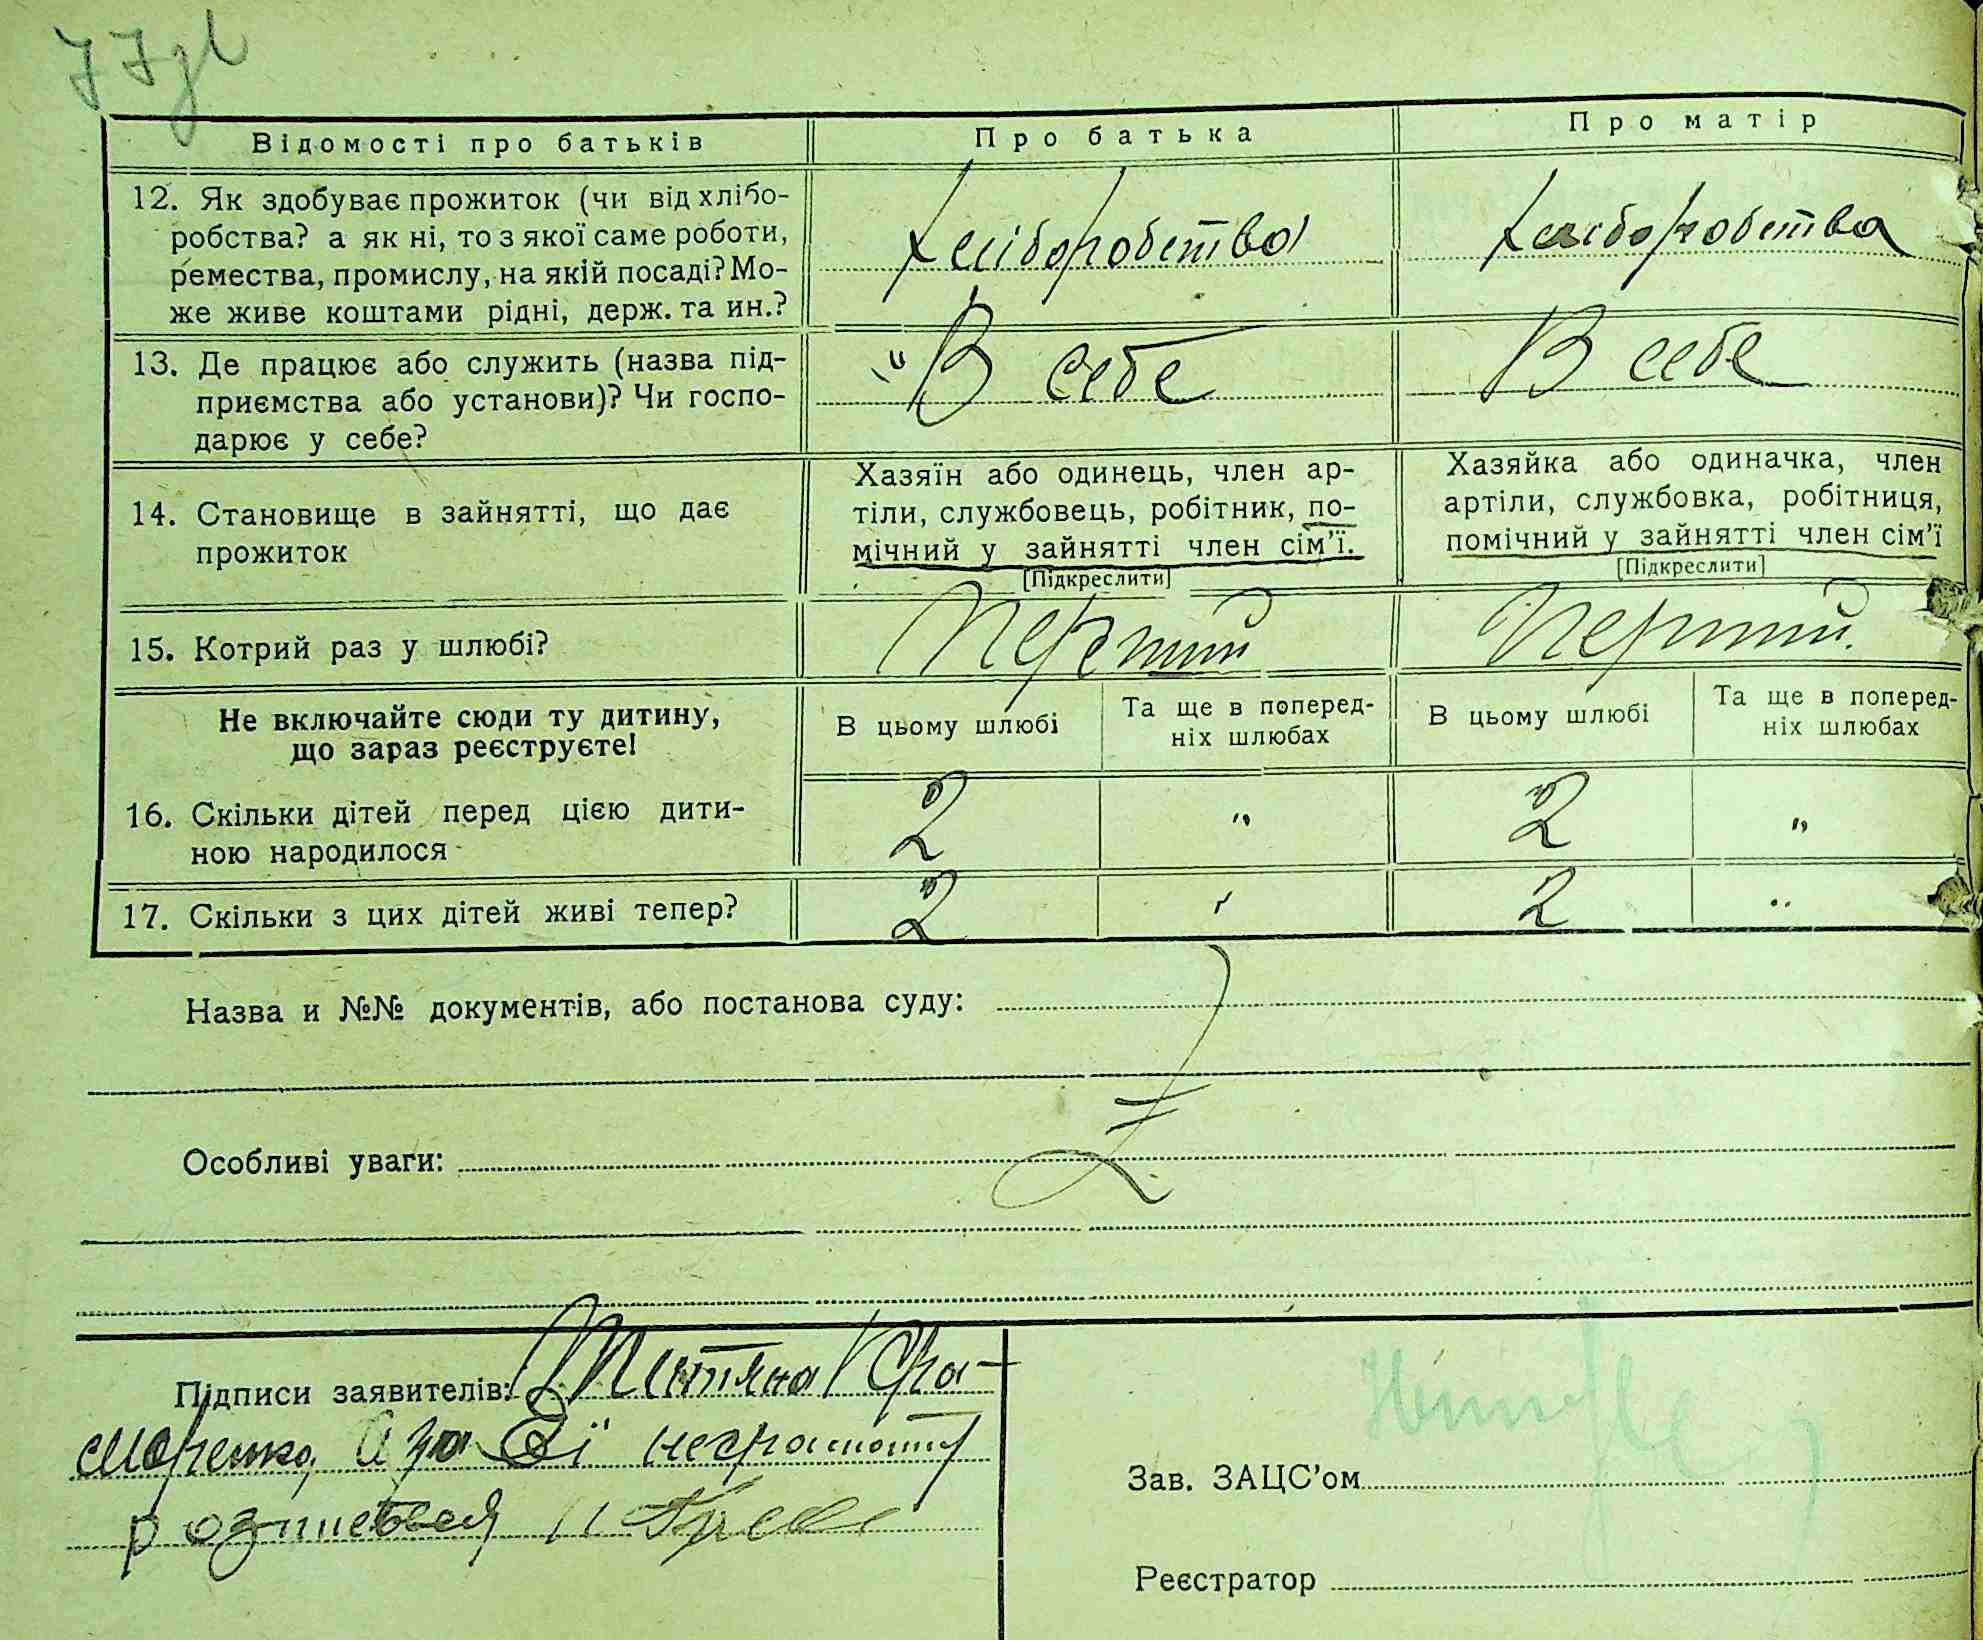 Відомості про батьків Про батька Про матір
12. Як здобуває прожиток (чи від хлібо-
робства? а як ні, то з якої саме роботи,
ремества, промислу, на якій посаді? Мо-
же живе коштами рідні, держ. та ин.?
хліборобства хліборобства
13. Де працює або служить (назва під-
приємства або установи)? Чи госпо-
дарює у себе?
В себе В себе
14. Становище в зайнятті, що дає
прожиток
Хазяїн або одинець, член ар-
тіли, службовець, робітник, по-
мічний у зайнятті член сім'ї.
[Підкреслити]
Хазяйка або одиначка, член
артіли, службовка, робітниця,
помічний у зайнятті член сім'ї
[Підкреслити]
15. Котрий раз у шлюбі? Перший Перший.
Не включайте сюди ту дитину,
що зараз реєструєте!
В цьому шлюбі
Та ще в поперед-
ніх шлюбах
В цьому шлюбі
Та ще в поперед-
ніх шлюбах
16. Скільки дітей перед цією дити-
ною народилося
2 " 2 "
17. Скільки з цих дітей живі тепер? 2 " 2 "
Назва и №№ документів, або постанова суду:
Особливі уваги:
Підписи заявителів:
а за її неграмотну
розписався
Зав. ЗАЦС'ом
Реєстратор